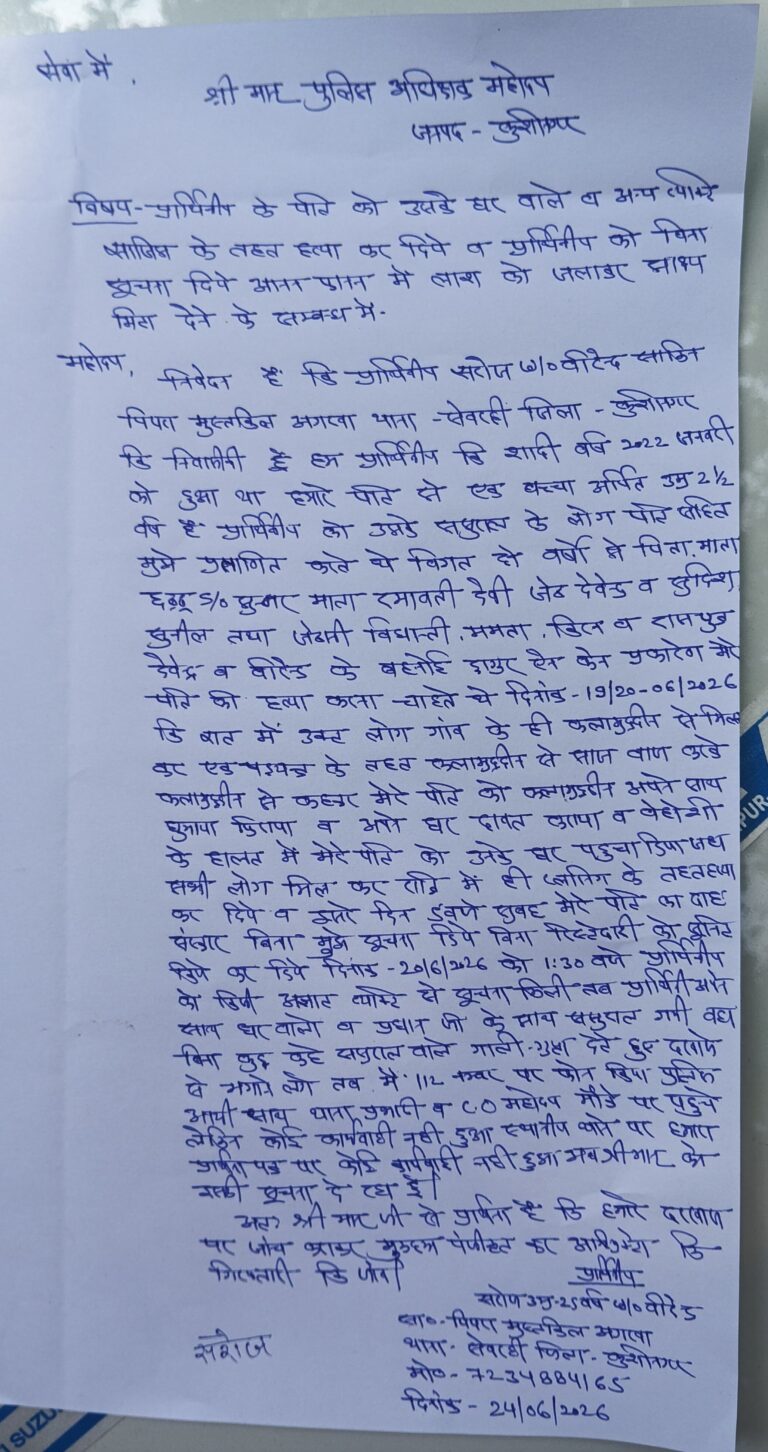 सेवा में,
श्री मान पुलिस अधिक्षक महोदय
जनपद - कुशीनगर
विषय - प्रार्थिनीय के पति को उसके घर वाले व अन्य व्यक्ति
साजिस के तहत हत्या कर दिये व प्रार्थिनीय को बिना
सूचना दिये आनन फानन में लाश को जलाकर साक्ष्य
मिटा देने के सम्बन्ध में -
महोदय,
निवेदन है कि प्रार्थिनीय सरोज W/o वीरेन्द्र साकिन
पिपरा मुस्तकिल अगरवा थाना - सेवरही जिला - कुशीनगर
कि निवासिनी है हम प्रार्थिनीय कि शादी वर्ष 2022 जनवरी
को हुआ था हमारे पति से एक बच्चा अर्पित उम्र 2½
वर्ष है प्रार्थिनीय को उनके ससुराल के लोग पति सहित
मुझे प्रताणित करते थे विगत दो वर्षो से पिता, माता
S/o सुक्कर माता रमावती देवी जेठ देवेन्द्र व सुदिश,
सुनील तथा जेठानी विद्यान्ती, ममता, किरन व रामपुर
देवेन्द्र व वीरेन्द्र के बहनोई ठाकुर ऐन केन प्रकारेण मेरे
पति की हत्या करना चाहते थे दिनांक - 19/20-06/2026
कि बात में उक्त लोग गांव के ही कलामुद्दीन से मिल
कर एक षडयन्त्र के तहत कलामुद्दीन से साज बाज करके
कलामुद्दीन से कहकर मेरे पति को कलामुद्दीन अपने साथ
घुमाया फिराया व अपने घर दावत कराया व बेहोशी
के हालत में मेरे पति को उनके घर पहुचा दिया जब
सभी लोग मिल कर रात्रि में ही प्लानिंग के तहत हत्या
कर दिये व दूसरे दिन सुबह मेरे पति का दाह
संस्कार बिना मुझे सूचना दिये बिना रिस्तेदारी को सूचित
किये कर दिये दिनांक - 20/6/2026 को 1:30 बजे प्रार्थिनीय
को किसी अज्ञात व्यक्ति से सूचना मिली तब प्रार्थिनी अपने
साथ घर वालो व प्रधान जी के साथ ससुराल गयी वहा
बिना कुछ कहे ससुराल वाले गाली-गुप्ता देते हुए दरवाजे
से भगाने लगे तब मैं 112 नम्बर पर फोन किया पुलिस
आयी साथ थाना प्रभारी व CO महोदय मौके पर पहुचे
लेकिन कोई कार्यवाही नही हुआ स्थानीय थाने पर हमारा
प्रार्थना पत्र पर कोई कार्यवाही नही हुआ अब श्रीमान को
इसकी सूचना दे रहा हूँ।
अतः श्री मान जी से प्रार्थना है कि हमारे दरखास
पर जांच कराकर मुकदमा पंजीकृत कर अभियुक्तो कि
गिरफ्तारी कि जाये।
प्रार्थिनीय
सरोज उम्र-25 वर्ष W/o वीरेन्द्र
सा०- पिपरा मुस्तकिल अगरवा
थाना- सेवरही जिला- कुशीनगर
मो०- 7234884165
दिनांक - 24/06/2026
सरोज
SUZU
PUR